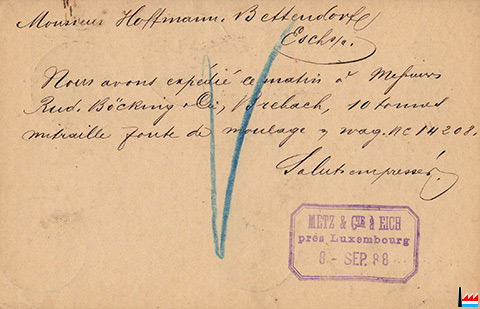 Monsieur Hoffmann-Bettendorf
Esch s/a.
Nous avons expédié ce matin à Messieurs
Rud. Böcking & Cie, Brebach, 10 tonnes
mitraille fonte de moulage wag. AC 14208.
Salut empressé.
METZ & CIE à EICH
près Luxembourg
8 - SEP. 88